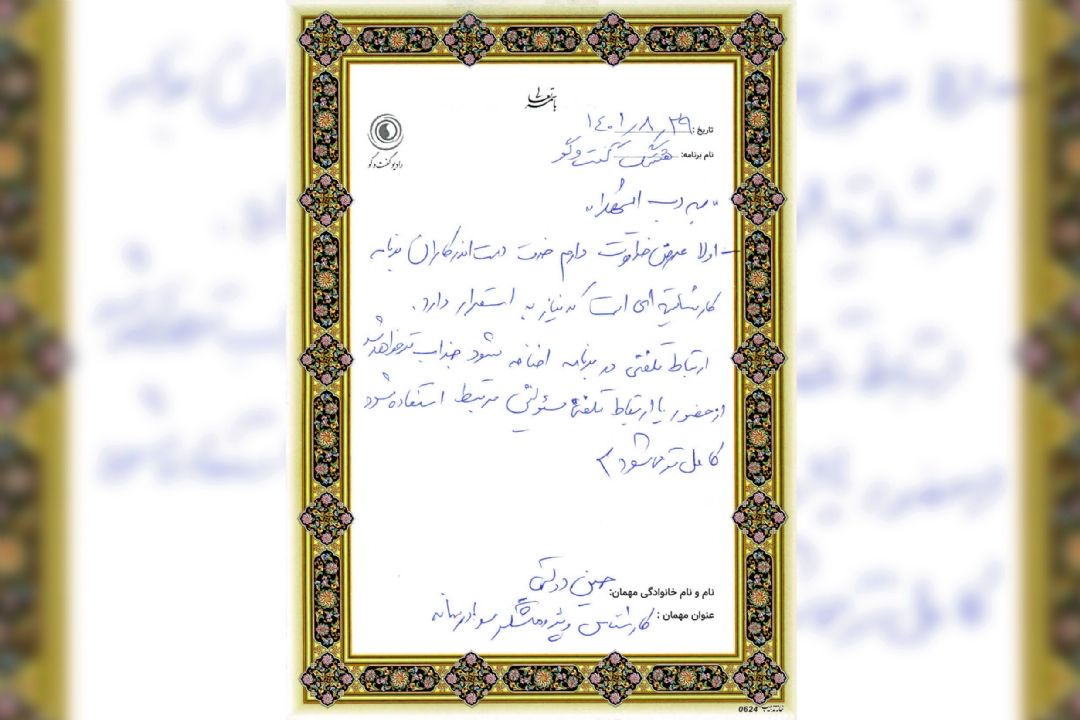 باسمه تعالی
تاریخ: ۱۴۰۱/۸/۲۹
نام برنامه: هشتگ گفت‌وگو
رادیو گفت و گو
"به رب الشهدا"
- اولا عرض خداقوت دارم خدمت دست‌اندرکاران برنامه
کار شایسته‌ای است که نیاز به استمرار دارد.
ارتباط تلفنی در برنامه اضافه شود جذاب‌تر خواهد شد
از حضور یا ارتباط تلفنی مسئولین مرتبط استفاده شود
کامل‌تر می‌شود
نام و نام خانوادگی مهمان: حسین دولتی
عنوان مهمان: کارشناس و پژوهشگر سواد رسانه
0624